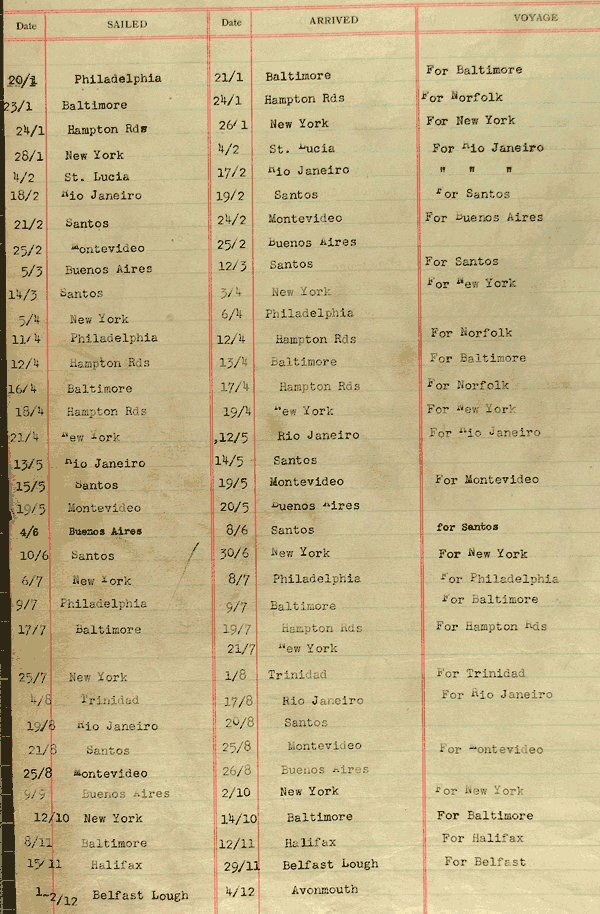 Date SAILED Date ARRIVED VOYAGE
20/1 Philadelphia 21/1 Baltimore For Baltimore
23/1 Baltimore 24/1 Hampton Rds For Norfolk
24/1 Hampton Rds 26/1 New York For New York
28/1 New York 4/2 St. Lucia For Rio Janeiro
4/2 St. Lucia 17/2 Rio Janeiro " " "
18/2 Rio Janeiro 19/2 Santos For Santos
21/2 Santos 24/2 Montevideo For Buenos Aires
25/2 Montevideo 25/2 Buenos Aires
5/3 Buenos Aires 12/3 Santos For Santos
14/3 Santos 3/4 New York For New York
5/4 New York 6/4 Philadelphia
11/4 Philadelphia 12/4 Hampton Rds For Norfolk
12/4 Hampton Rds 13/4 Baltimore For Baltimore
16/4 Baltimore 17/4 Hampton Rds For Norfolk
18/4 Hampton Rds 19/4 New York For New York
21/4 New York 12/5 Rio Janeiro For Rio Janeiro
13/5 Rio Janeiro 14/5 Santos
15/5 Santos 19/5 Montevideo For Montevideo
19/5 Montevideo 20/5 Buenos Aires
4/6 Buenos Aires 8/6 Santos for Santos
10/6 Santos 30/6 New York For New York
6/7 New York 8/7 Philadelphia For Philadelphia
9/7 Philadelphia 9/7 Baltimore For Baltimore
17/7 Baltimore 19/7 Hampton Rds For Hampton Rds
21/7 New York
25/7 New York 1/8 Trinidad For Trinidad
4/8 Trinidad 17/8 Rio Janeiro For Rio Janeiro
19/8 Rio Janeiro 20/8 Santos
21/8 Santos 25/8 Montevideo For Montevideo
25/8 Montevideo 26/8 Buenos Aires
9/9 Buenos Aires 2/10 New York For New York
12/10 New York 14/10 Baltimore For Baltimore
8/11 Baltimore 12/11 Halifax For Halifax
15/11 Halifax 29/11 Belfast Lough For Belfast
1-2/12 Belfast Lough 4/12 Avonmouth